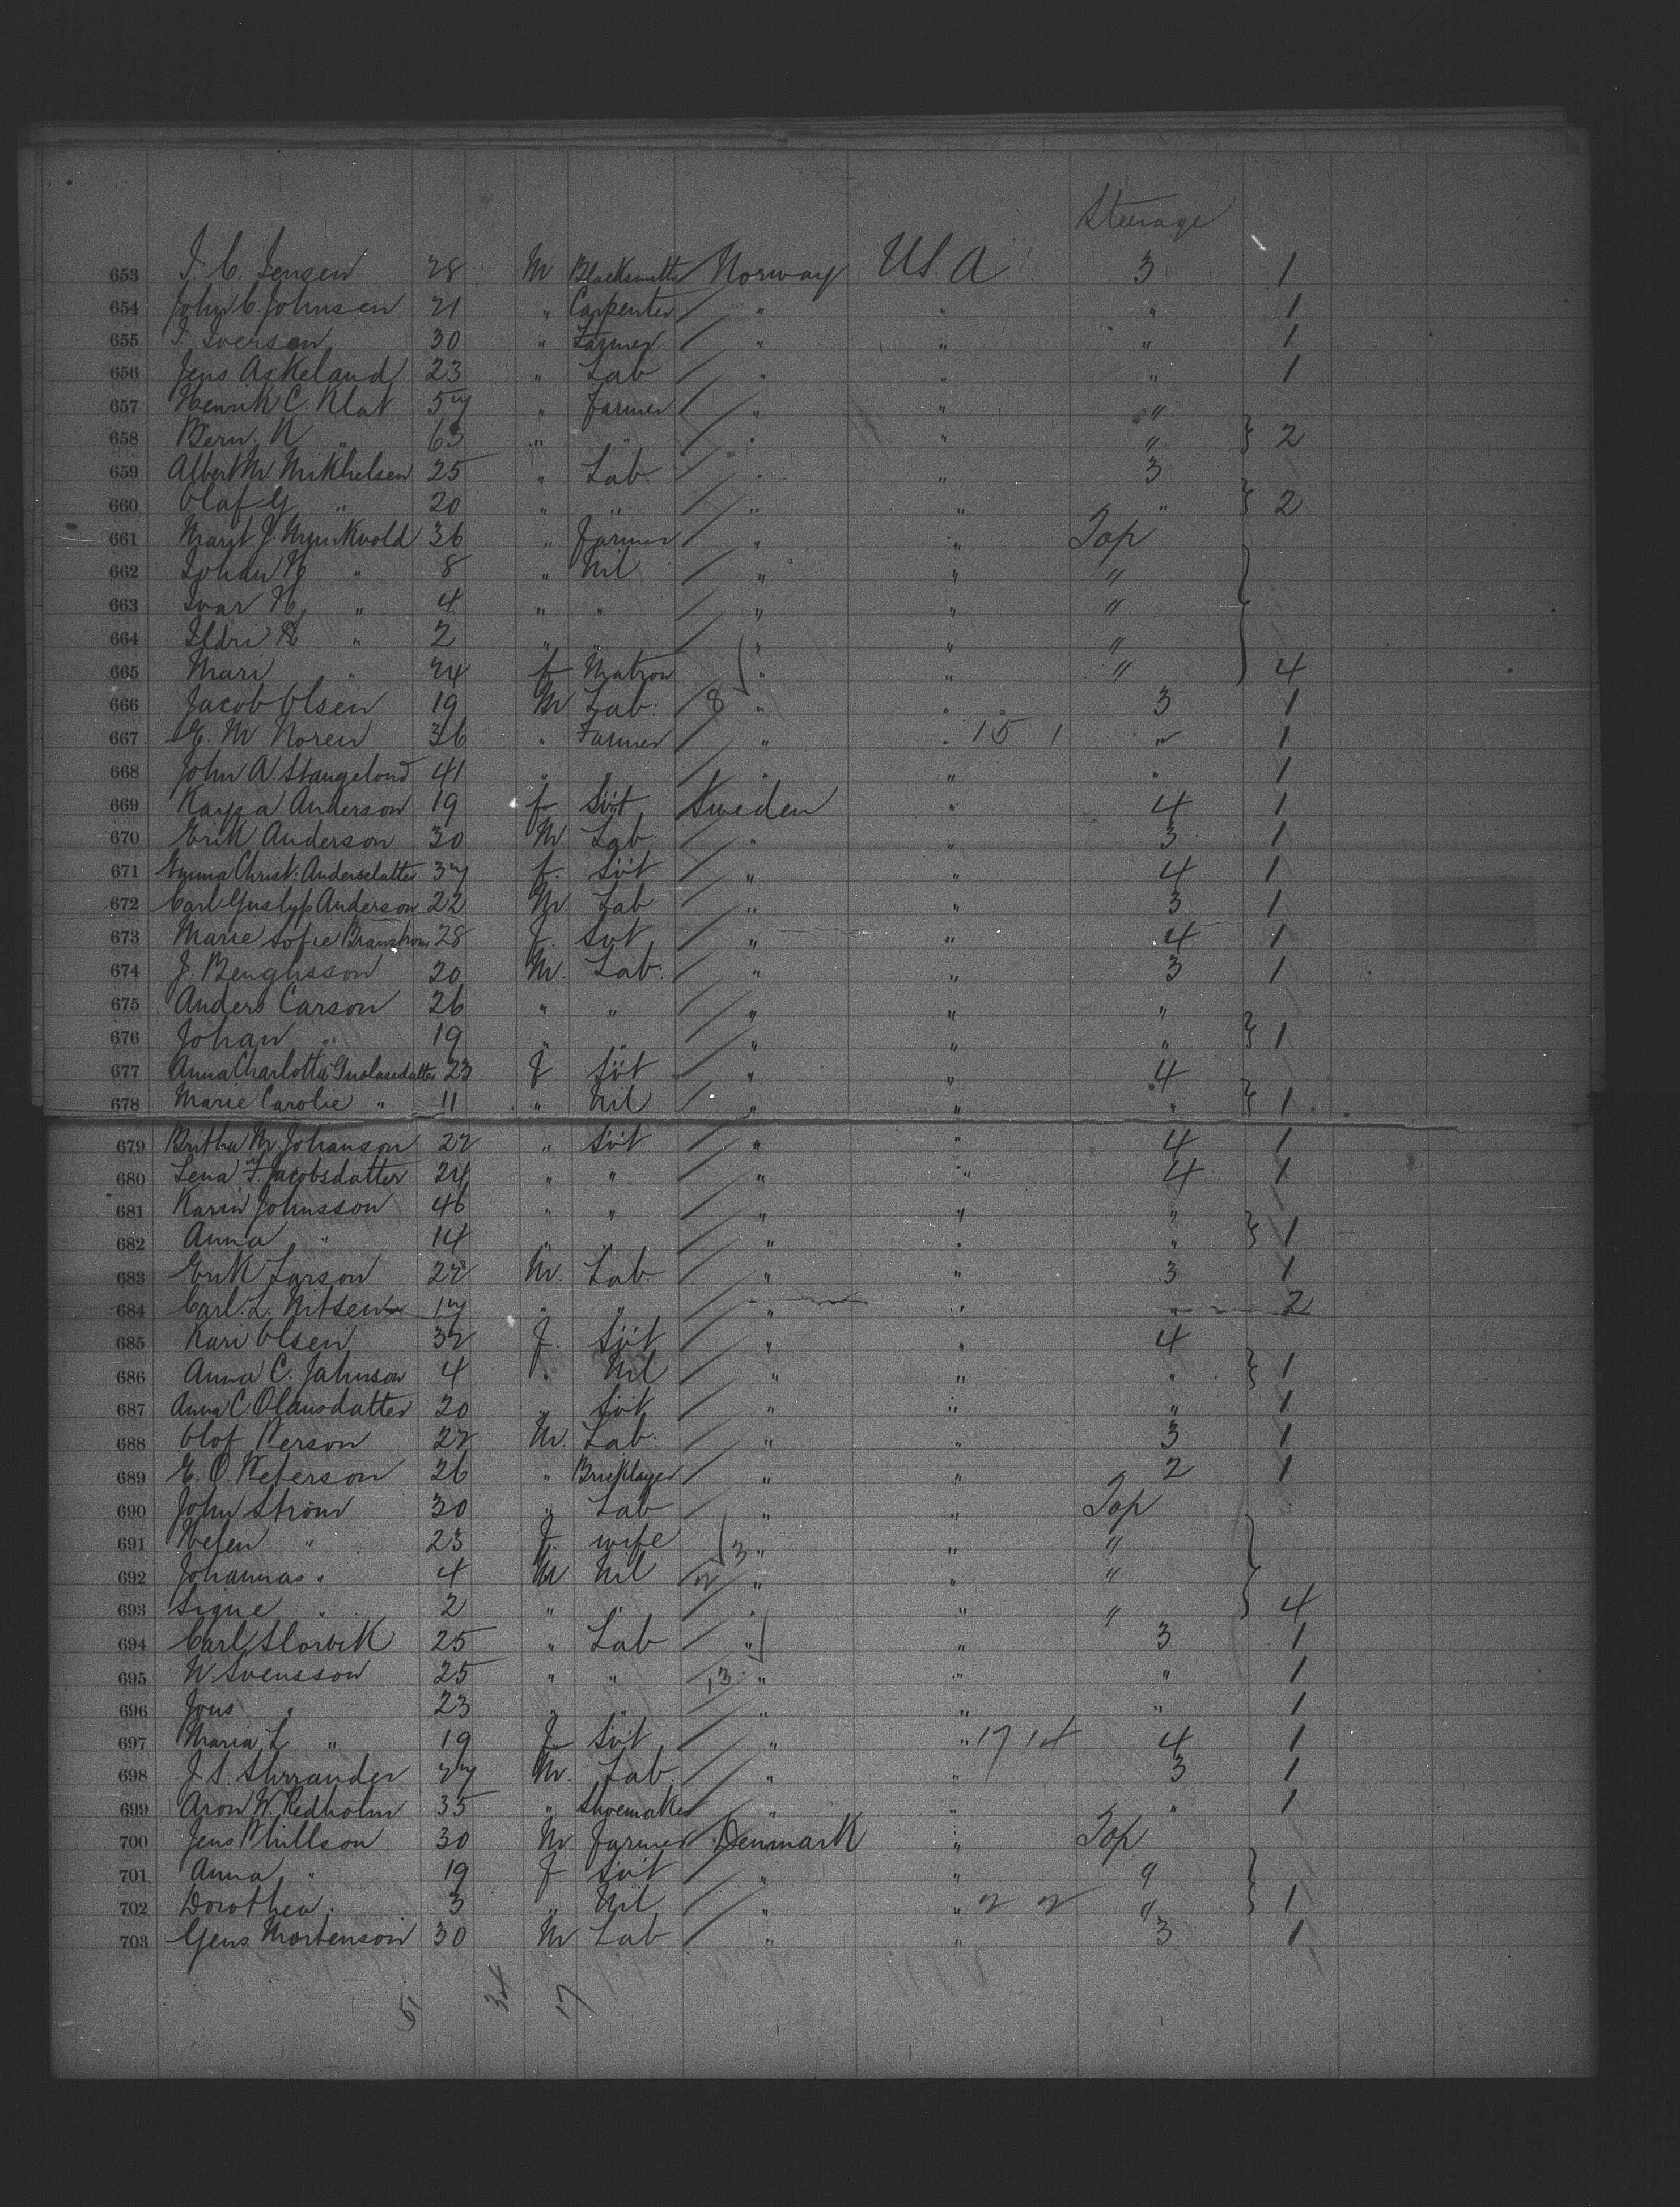 Steerage
653 J. C. Jensen 28 M Blacksmith Norway U.S.A. 3 1
654 John C. Johnsen 21 " Carpenter / " " " 1
655 I. Iversen 30 " Farmer / " " " 1
656 Jens Askeland 23 " Lab / " " " 1
657 Henrik C. Klat 57 " Farmer / " " "
658 Bern. K " 63 " " / " " " } 2
659 Albert M. Mikkelsen 25 " Lab. / " " 3
660 Olaf G " 20 " " / " " " } 2
661 Marit J. Myrkvold 36 " Farmer / " " Top
662 Johan H " 8 " Nil / " " "
663 Ivar H. " 4 " " / " " "
664 Ildri " 2 " " / " " "
665 Mari " 24 f Matron " " " } 4
666 Jacob Olsen 19 M Lab. 8 " " 3 1
667 E. M. Noren 36 " Farmer / " " 15 1 " 1
668 John A. Stangeland 41 " " / " " " 1
669 Kaysa Anderson 19 f Svt Sweden " 4 1
670 Erik Anderson 30 M. Lab. / " " 3 1
671 Emma Christ. Andersdatter 37 f. Svt / " " 4 1
672 Carl Anderson 22 M. Lab / " " 3 1
673 Marie Sofie Branstrom 28 f. Svt / " " 4 1
674 J. Benghsson 20 M. Lab. / " " 3 1
675 Anders Carson 26 " " / " " "
676 Johan " 19 " " / " " " } 1
677 Anna Charlotta 23 f Svt / " " 4
678 Marie Carolie " 11 " Nil / " " " } 1
679 Britha M. Johanson 22 " Svt / " " 4 1
680 Lena F. Jacobsdatter 24 " " / " " 4 1
681 Karin Johnsson 46 " " / " " "
682 Anna " 14 " " / " " " } 1
683 Erik Larson 22 M. Lab. / " " 3 1
684 Carl. L. Nilsen 17 " " / " " " 2
685 Kari Olsen 32 f. Svt / " " 4
686 Anna C. Johnson 4 " Nil / " " " } 1
687 Anna C Olausdatter 20 " Svt / " " " 1
688 Olof Person 22 M. Lab. / " " 3 1
689 E. O. Peterson 26 " Bricklayer / " " 2 1
690 John Strom 30 " Lab / " " Top
691 Helen " 23 f. wife 3 " " "
692 Johannas " 4 M Nil " " "
693 Signe " 2 " " / " " " } 4
694 Carl Slorvik 25 " Lab / " " 3 1
695 N. Svensson 25 " " 13 " " " 1
696 Jons " 23 " " / " " " 1
697 Maria L " 19 f Svt / " " 17 14 4 1
698 J. S. 27 M. Lab. / " " 3 1
699 Aron W. Redholm 35 " Shoemaker / " " " 1
700 Jens Phillson 30 M Farmer Denmark " Top
701 Anna " 19 f Svt / " " "
702 Dorothea " 3 " Nil / " " 2 2 " } 1
703 Gens Mortenson 30 M Lab / " " 3 1
51 34 17